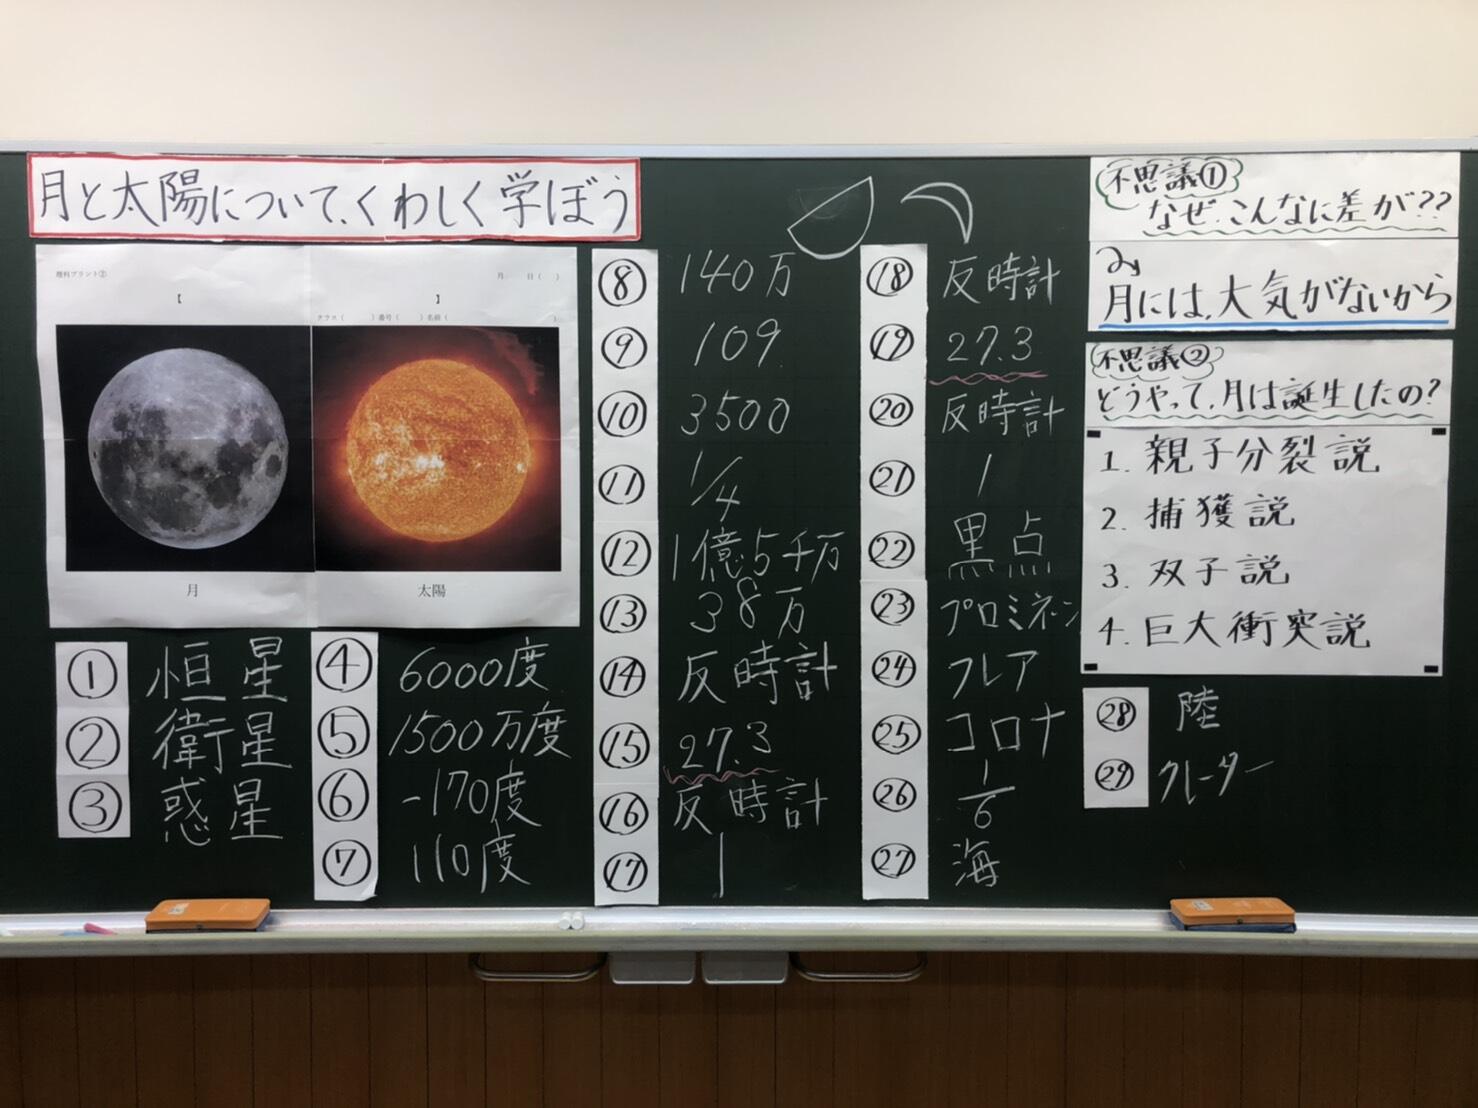 月と太陽について、くわしく学ぼう
理科プリント②
月 日( )
【 】
クラス( )番号( )名前( )
月
太陽
① 恒星
② 衛星
③ 惑星
④ 6000度
⑤ 1500万度
⑥ -170度
⑦ 110度
⑧ 140万
⑨ 109
⑩ 3500
⑪ 1/4
⑫ 1億5千万
⑬ 38万
⑭ 反時計
⑮ 27.3
⑯ 反時計
⑰ 1
⑱ 反時計
⑲ 27.3
⑳ 反時計
㉑ 1
㉒ 黒点
㉓ プロミネン
㉔ フレア
㉕ コロナ
㉖ 1/6
㉗ 海
不思議①
なぜ、こんなに差が??
み
月には、大気がないから
不思議②
どうやって、月は誕生したの?
1. 親子分裂説
2. 捕獲説
3. 双子説
4. 巨大衝突説
㉘ 陸
㉙ クレーター